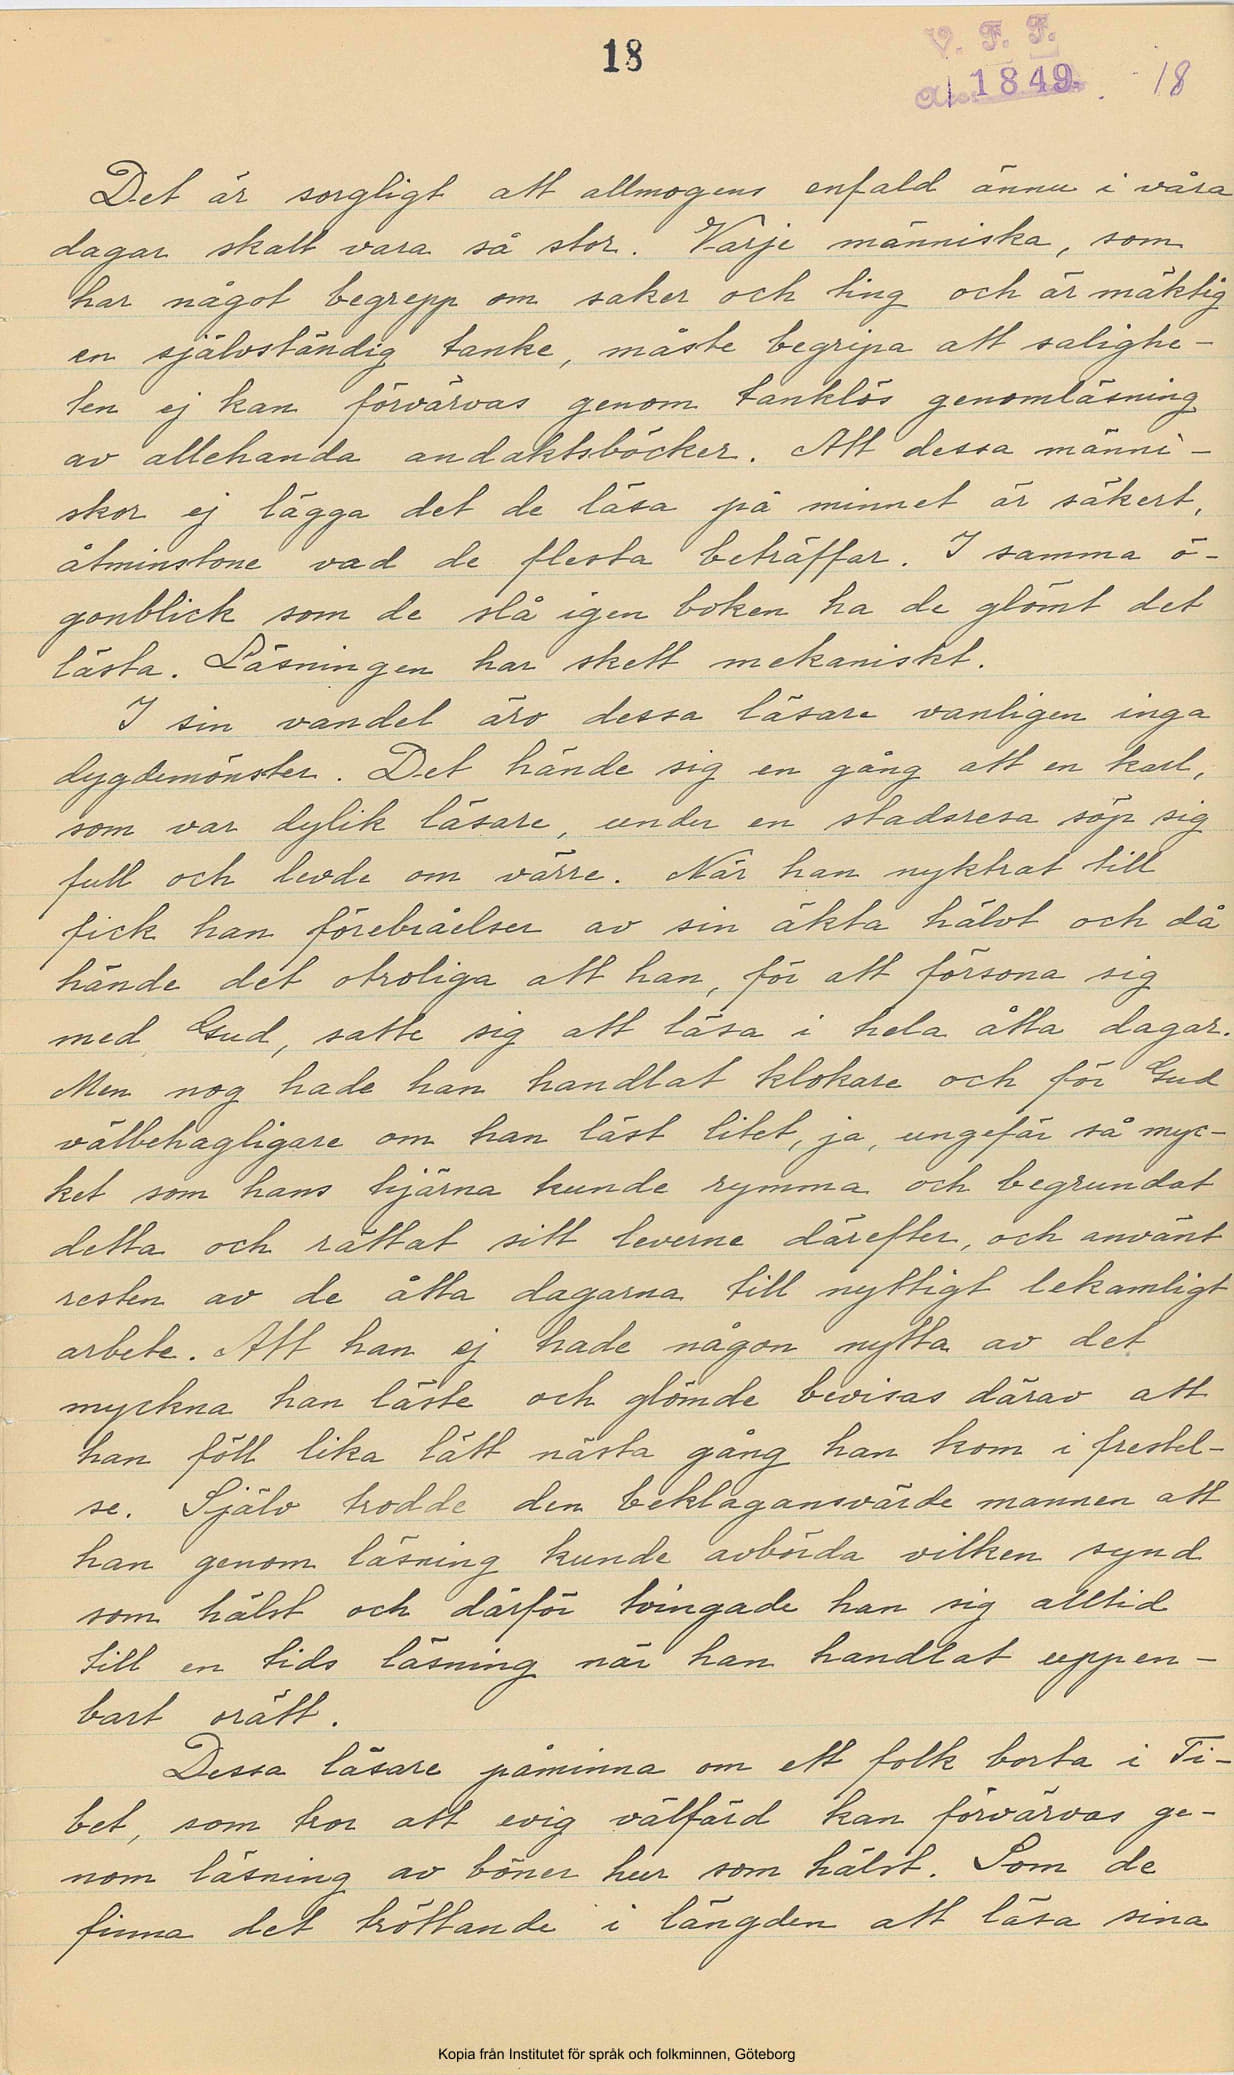 18
V. F. F.
Acc. 1849. 18
Det är sorgligt att allmogens enfald ännu i våra
dagar skall vara så stor. Varje människa, som
har något begrepp om saker och ting och är mäktig
en självständig tanke, måste begripa att salighe-
ten ej kan förvärvas genom tanklös genomläsning
av allehanda andaktsböcker. Att dessa männi-
skor ej lägga det de läsa på minnet är säkert,
åtminstone vad de flesta beträffar. I samma ö-
gonblick som de slå igen boken ha de glömt det
lästa. Läsningen har skett mekaniskt.
I sin vandel äro dessa läsare vanligen inga
dygdemönster. Det hände sig en gång att en karl,
som var dylik läsare, under en stadsresa söp sig
full och levde om värre. När han nyktrat till
fick han förebråelser av sin äkta hälvt och då
hände det otroliga att han, för att försona sig
med Gud, satte sig att läsa i hela åtta dagar.
Men nog hade han handlat klokare och för Gud
välbehagligare om han läst litet, ja, ungefär så myc-
ket som hans hjärna kunde rymma och begrundat
detta och rättat sitt leverne därefter, och använt
resten av de åtta dagarna till nyttigt lekamligt
arbete. Att han ej hade någon nytta av det
myckna han läste och glömde bevisas därav att
han föll lika lätt nästa gång han kom i frestel-
se. Själv trodde den beklagansvärde mannen att
han genom läsning kunde avbörda vilken synd
som hälst och därför tvingade han sig alltid
till en tids läsning när han handlat uppen-
bart orätt.
Dessa läsare påminna om ett folk borta i Ti-
bet, som tror att evig välfärd kan förvärvas ge-
nom läsning av böner hur som hälst. Som de
finna det tröttande i längden att läsa sina
Kopia från Institutet för språk och folkminnen, Göteborg